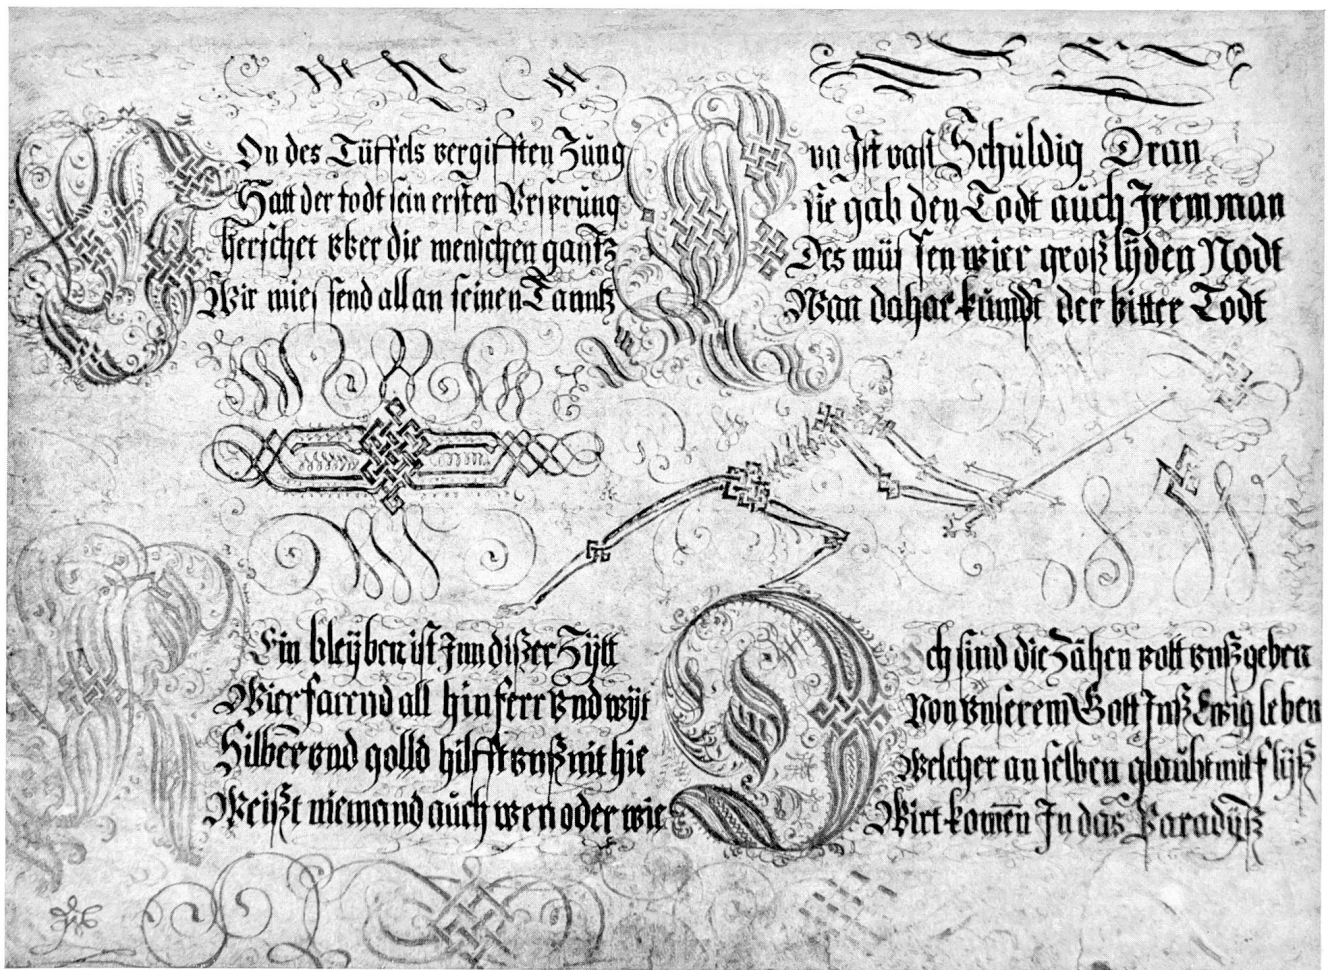 Von des Tüffels vergifften Zung
Hatt der todt sein ersten Ursprung
herschet vber die menschen gantz
Wir miessend all an seinen Tanntz
Eva Ist vast Schuldig Dran
sie gab den Todt auch Jremman
Des müssen wier groß lÿden Nodt
Wan dahar kumpt der bitter Todt
Kein bleÿben ist Inn dißer Zÿtt
Wier farend all hin ferr vnd wÿt
Silber vnd golld hilfft vnß nit hie
Weißt niemand auch wen oder wie
Doch sind die Zähen pott vnß geben
Von vnserem Gott Inß Ewig leben
Welcher an selben glaubt mit flÿß
Wirt komen In das Paradÿß